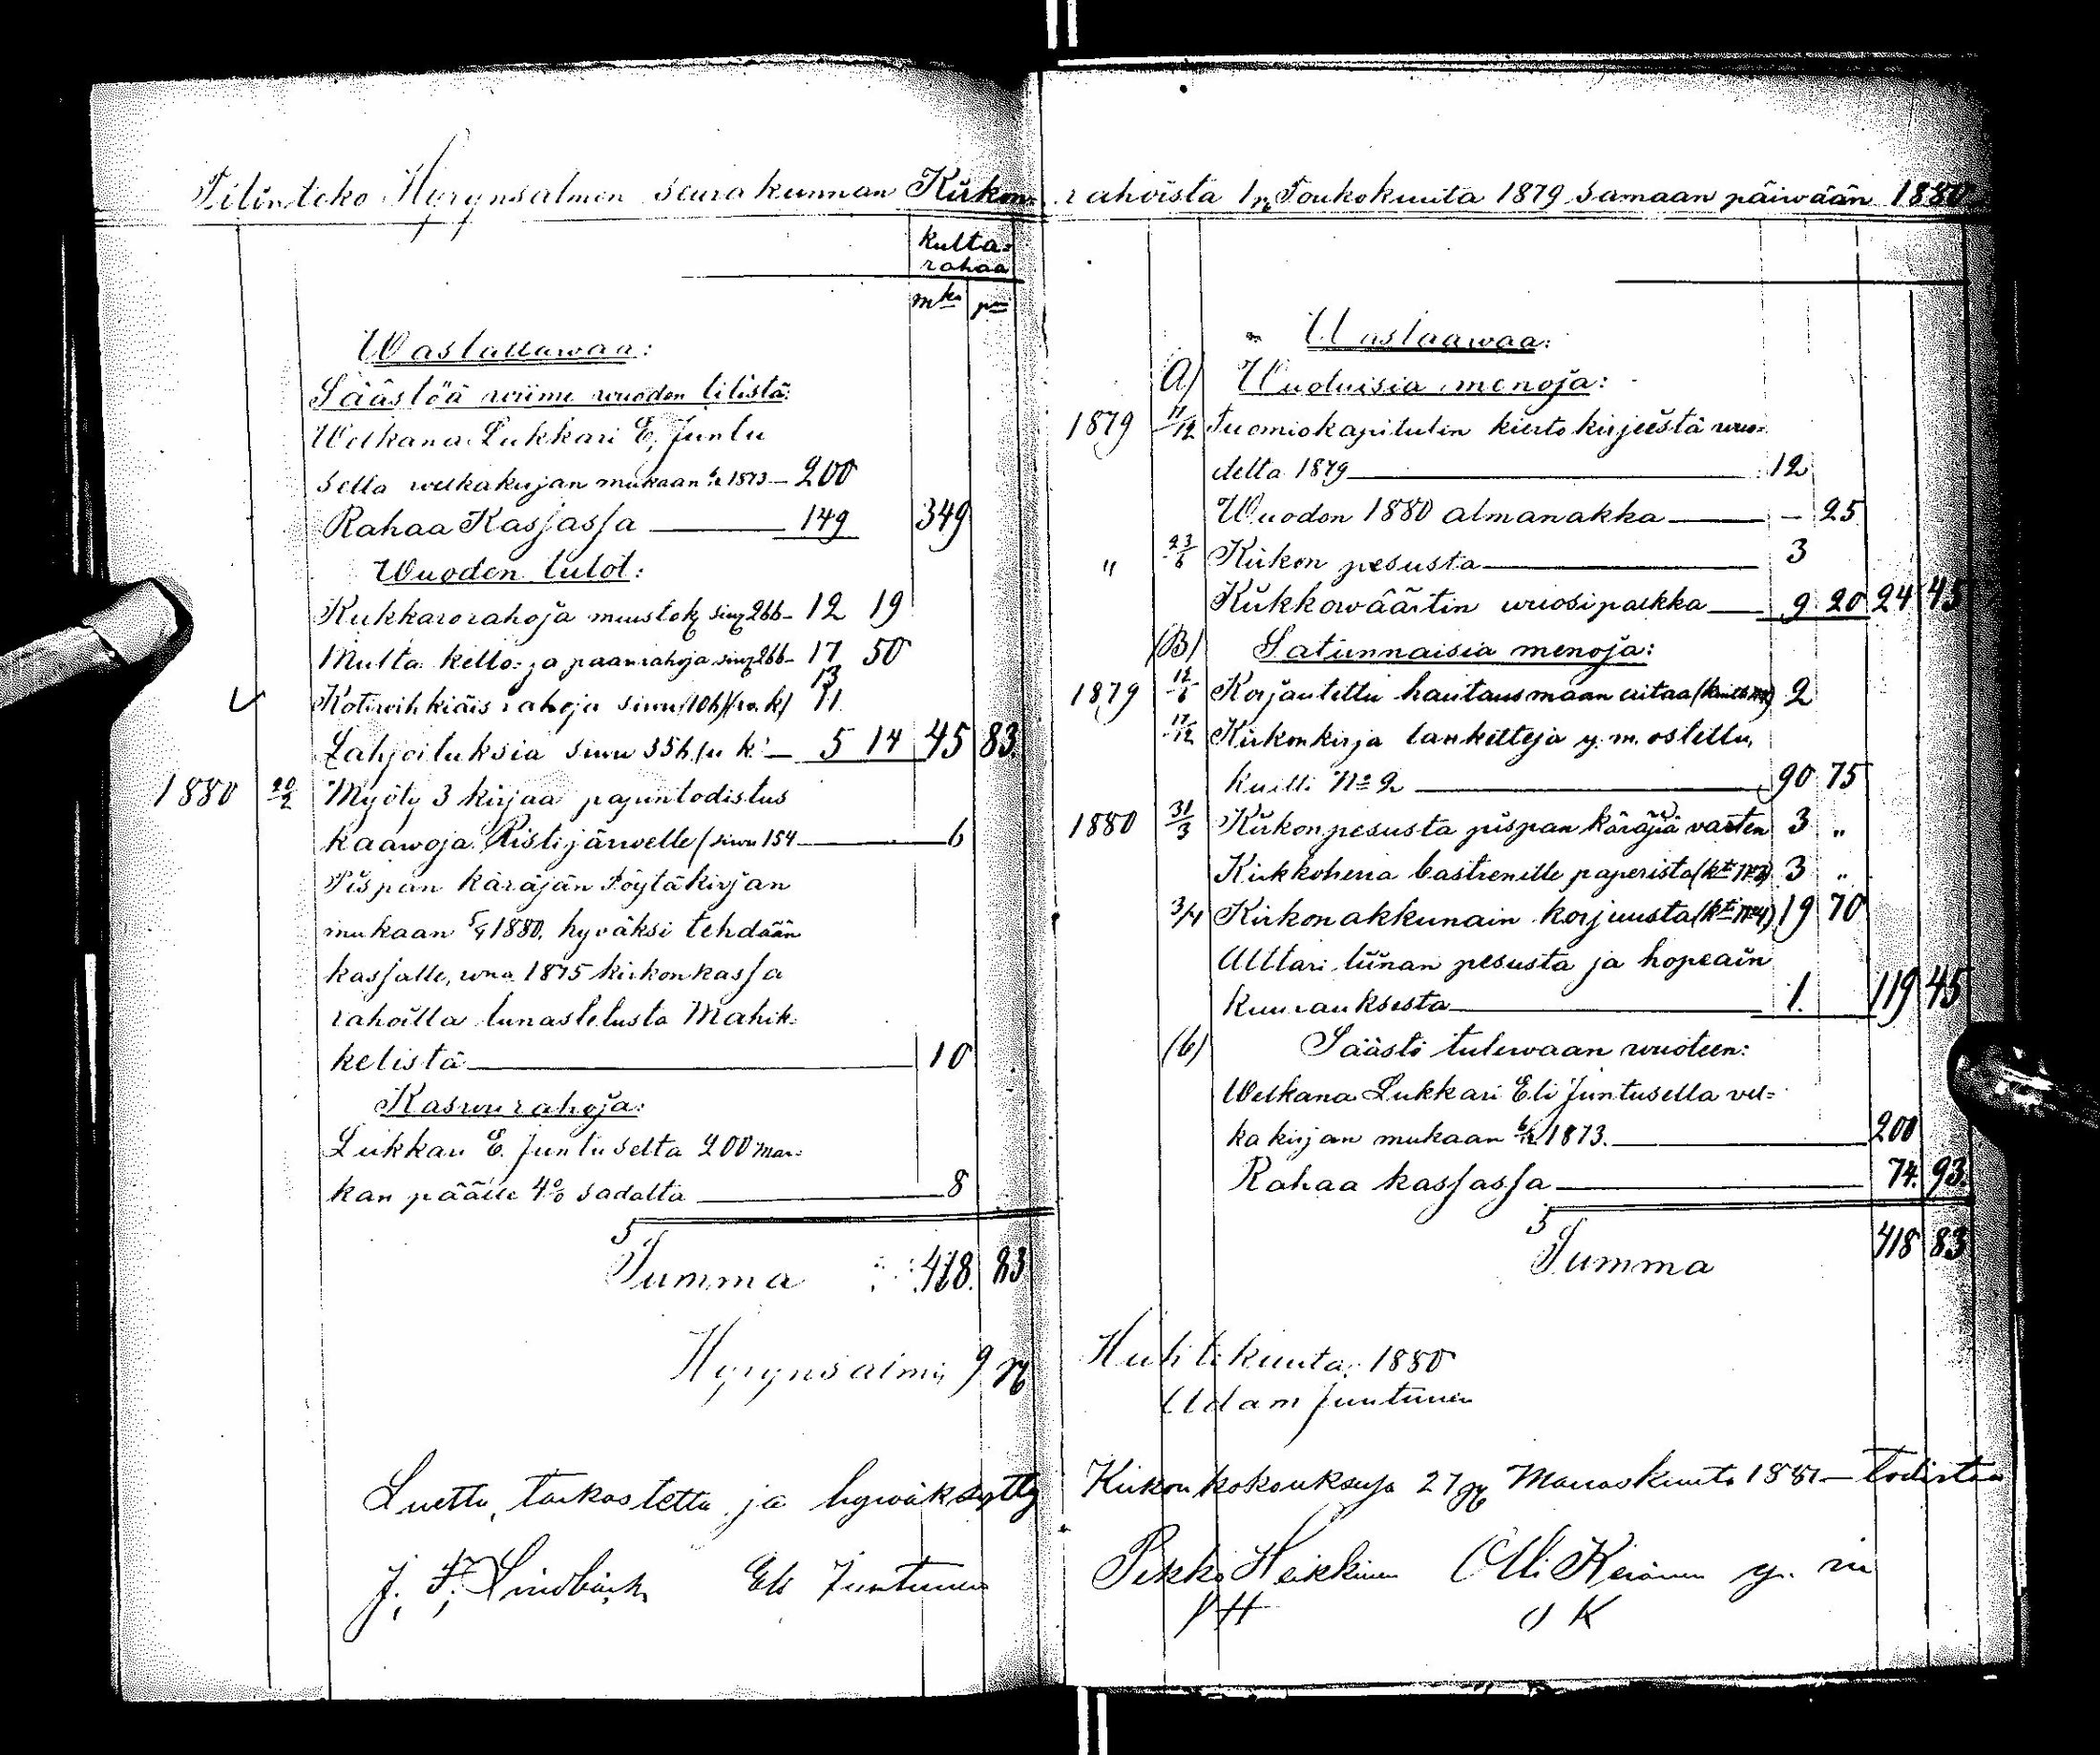 Tilinteko Hyrynsalmen seurakunnan Kirkon= rahoista 1 p. Toukokuuta 1879 samaan päiwään 1880
kulta=
rahaa
mka pni
Wastattawaa:
Säästöä wiime wuoden tilistä:
Welkana Lukkari E. Juntu
sella welkakirjan mukaan 1873 — 200
Rahaa Kassassa — 149 349
Wuoden tulot:
Kukkarorahoja muistok. siwu 266 — 12 19
Multa kello= ja paarirahoja siwu 266 — 17 50
13
Kotiwihkiäis rahoja siwu 10 h.) 11
Lahjoituksia siwu 35 h. — 5 14 45 83.
1880 20/2 Myöty 3 kirjaa papintodistus
kaawoja Ristijärwelle (siwu 154 — 6
Pispan käräjän Pöytäkirjan
mukaan 1880. hyväksi tehdään
kassalle, wna 1875 kirkonkassa
rahoilla lunastetusta Mahik=
kelista — 10
Kaswurahoja:
Lukkari E. Juntuselta 200 mar=
kan päälle 4% sadalta — 8
Summa 418. 83
Hyrynsalmi, 9 p.
Luettu, tarkastettu ja hywäksytty
J. F. Lindbäck Eli Juntunen
Wastaawaa:
A) Wuotuisia menoja:
1879 11/12 Tuomiokapitulin kiertokirjeistä wuo=
delta 1879 — 12
Wuoden 1880 almanakka — — 25
" 23/6 Kirkon pesusta — 3
Kirkkowäärtin wuosipalkka — 9 20 24 45
(B) Satunnaisia menoja:
1879 12/6 Korjautettu hautausmaan aitaa 2
17/12 Kirkonkirja lanketteja y. m. ostettu,
kuitti No 2 — 90 75
1880 31/3 Kirkonpesusta pispan käräjiä varten 3 "
Kirkkoherra Castrenille paperista (kti No 3) 3 "
3/4 Kirkon akkunain korjuusta (kti No 4) 19 70
Alttari liinan pesusta ja hopeain
kuurauksesta — 1. 119 45
Säästö tulewaan wuoteen:
Welkana Lukkari Eli Juntusella vel=
kakirjan mukaan 1873. — 200
Rahaa kassassa — 74. 93.
Summa 418 83
Huhtikuuta 1880
Adam Juntunen
Kirkonkokouksessa 27 p. Marraskuuta 1881 — todistaa
Pekka Heikkinen Olli Keränen
P H O K